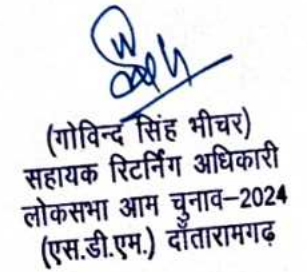 (गोविन्द सिंह भीचर)
सहायक रिटर्निंग अधिकारी
लोकसभा आम चुनाव–2024
(एस.डी.एम.) दाँतारामगढ़